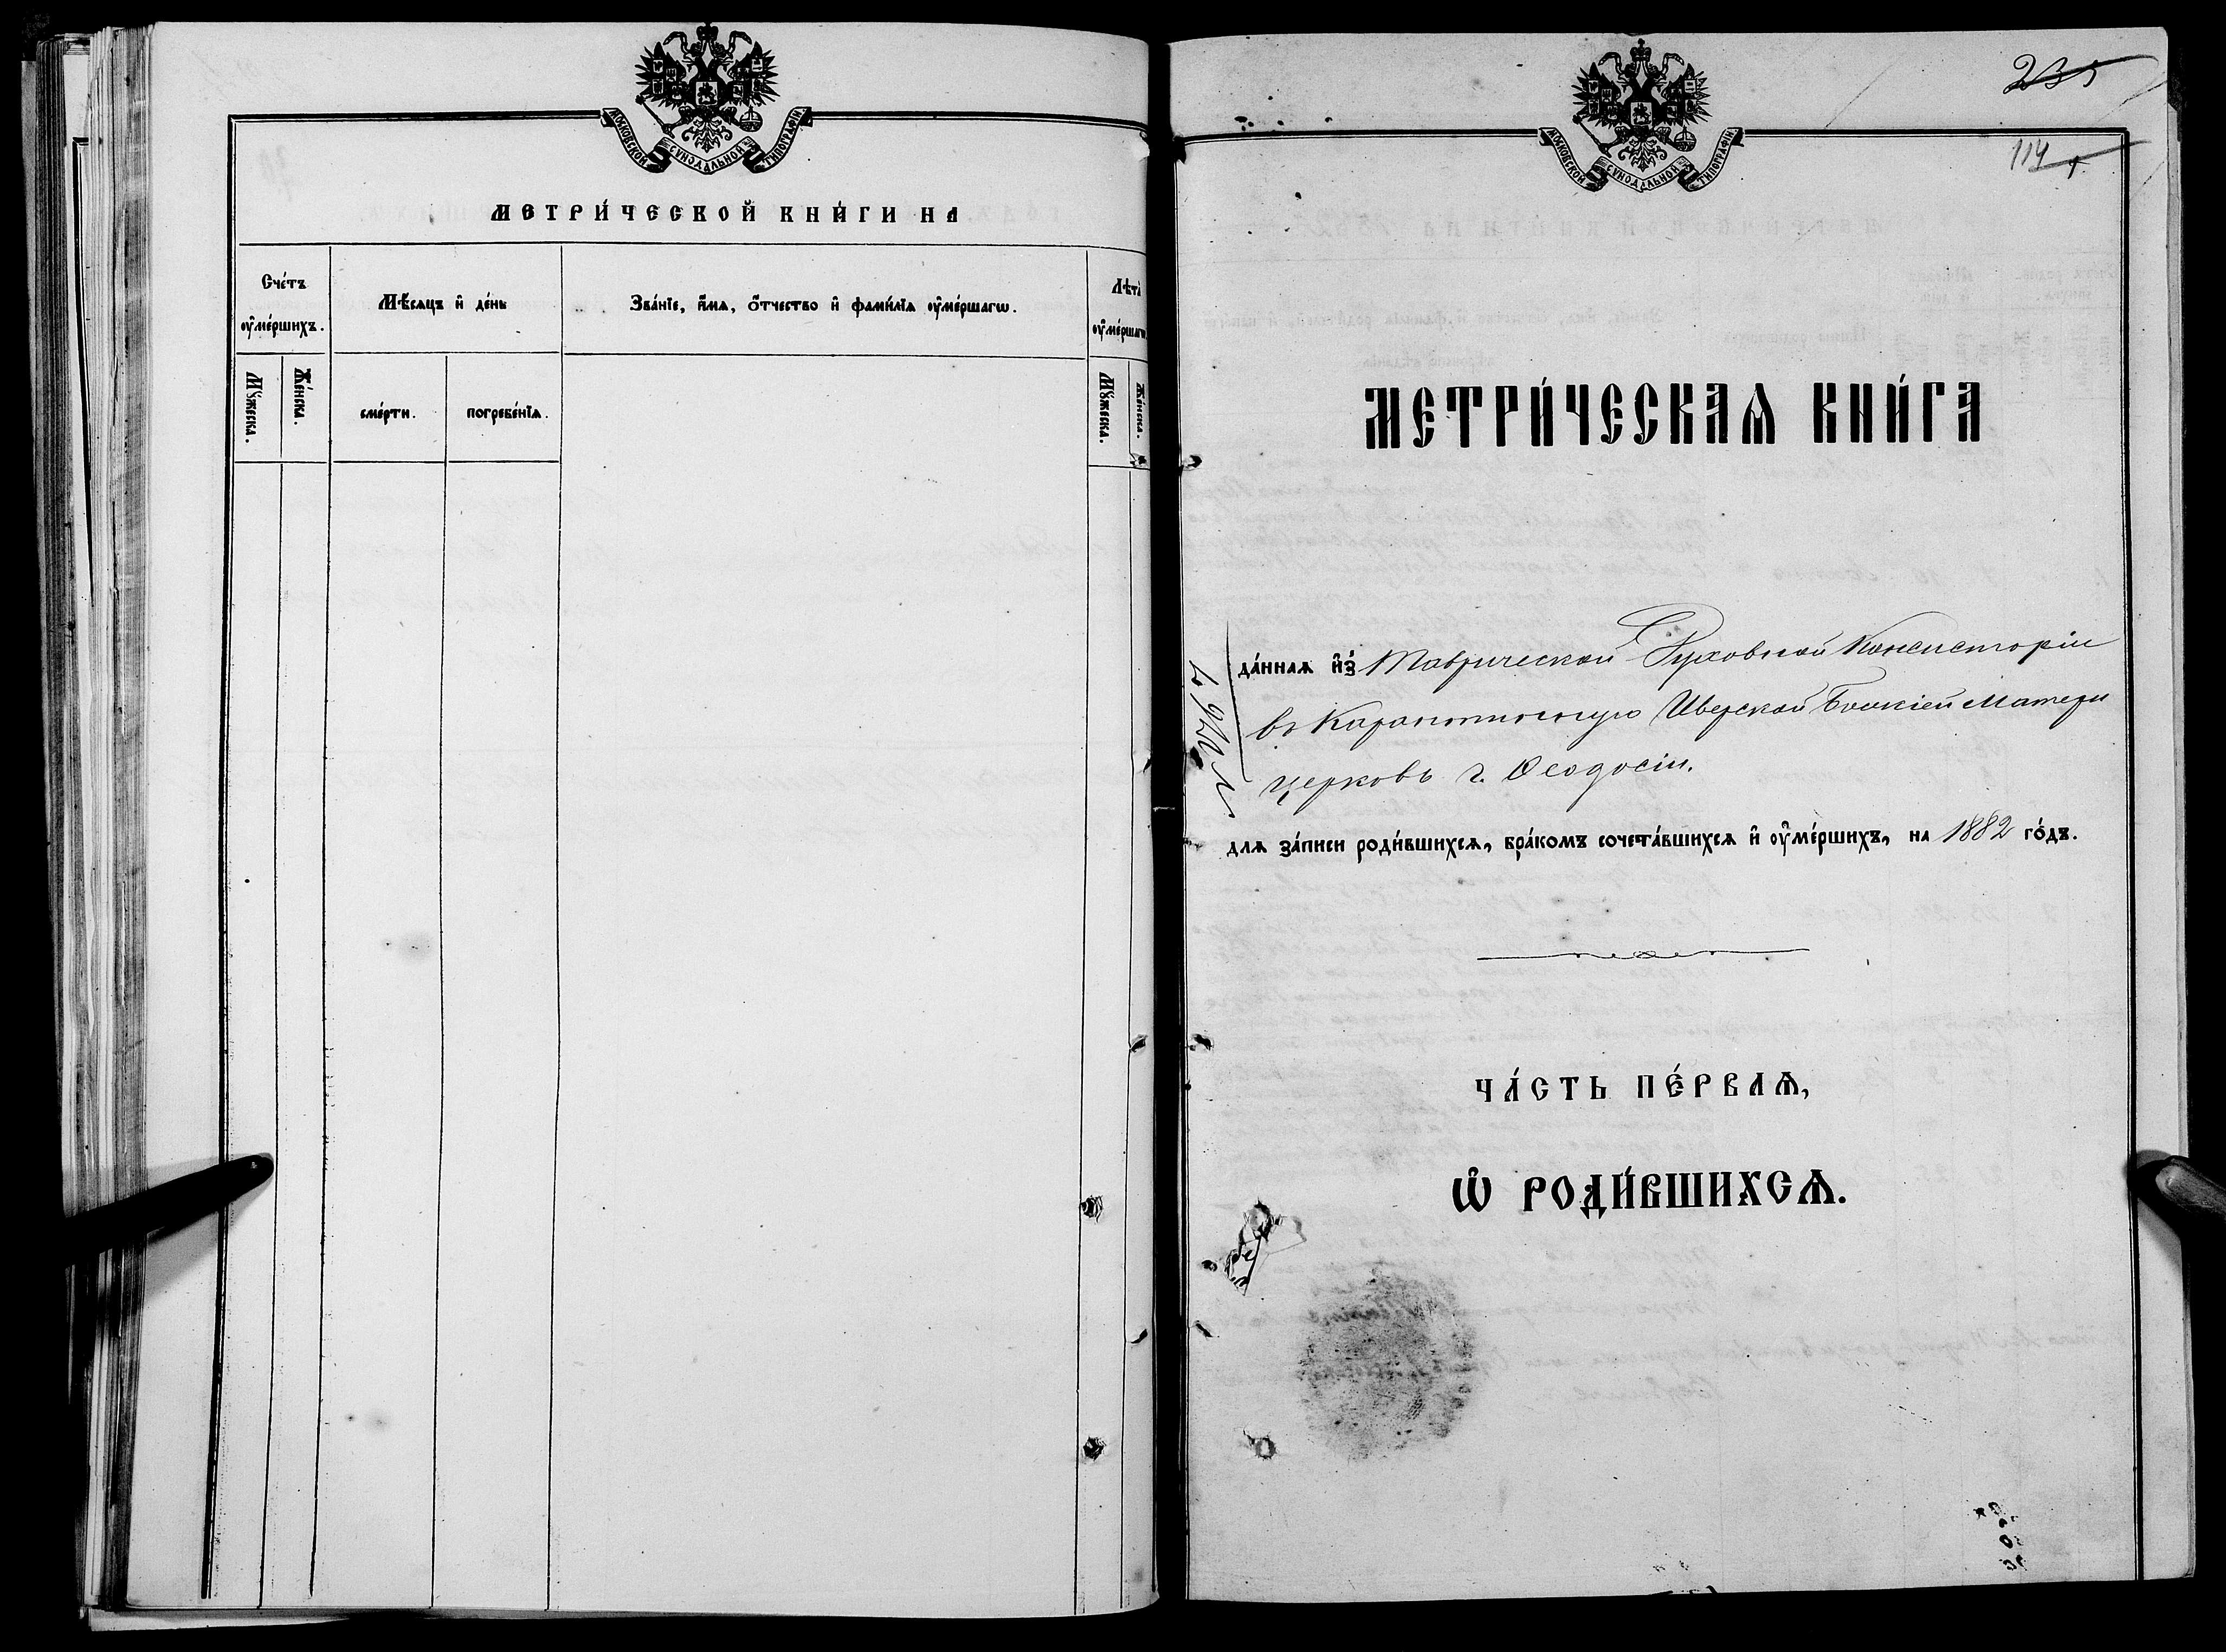 МОСКОВСКОЙ СѴНОДАЛЬНОЙ ТИПОГРАФІИ
МЕТРИ́ЧЕСКОЙ КНИ́ГИ НА
Сче́тъ ᲂу҆ме́ршихъ.
Мѣ́сяцъ и҆ де́нь
Зва́нїе, и҆́мѧ, ѻ҆́тчество и҆ фами́лїѧ ᲂу҆ме́ршагѡ.
Лѣта̀ ᲂу҆ме́ршагѡ
Мꙋ́жеска.
Же́нска.
сме́рти.
погребе́нїѧ.
Мꙋ́жеска.
Же́нска.
235
МОСКОВСКОЙ СѴНОДАЛЬНОЙ ТИПОГРАФІИ
114
МЕТРИ́ЧЕСКАѦ КНИ́ГА
да́ннаѧ и҆з̾ Таврической Духовной Консисторіи
въ Карантинную Иверской Божіей Матери
церковь г. Ѳеодосіи.
длѧ за́писи роди́вшихсѧ, бра́комъ сочета́вшихсѧ и҆ ᲂу҆ме́ршихъ, на 1882 го́дъ.
ЧА́СТЬ ПЕ́РВАѦ,
Ѽ РОДИ́ВШИХСѦ.